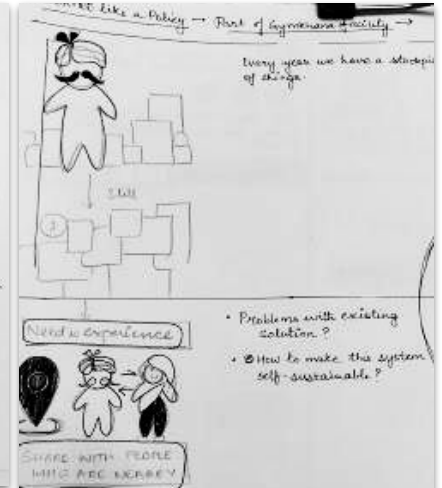 like a Policy → Part of Gymkhana facility →
Every year we have a
of things.
Still
1
Need is experience
• Problems with existing
solution?
• How to make this system
self-sustainable?
SHARE WITH PEOPLE
WHO ARE NEARBY